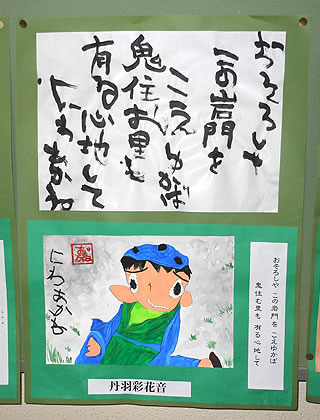 おそろしや
この岩門を
こえゆけば
鬼住む里も
有る心地して
にわあかね
にわあかね
おそろしや この岩門を こえゆかば
鬼住む里も 有る心地して
丹羽彩花音